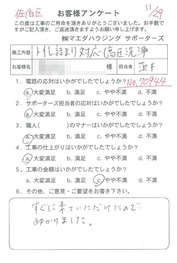 佐伯区
11/29
お客様アンケート
この度は工事のご用命を頂きありがとうございました。お手数で
すがご記入頂き、ご返送頂きますようお願い申し上げます。
㈱マエダハウジング サポーターズ
施工内容 トイレ詰まり対応・高圧洗浄
お名前 様 担当者
1. 電話の対応はいかがでしたでしょうか? No,70944
A.大変満足 B.満足 C.やや不満 D.不満
2. サポーターズ担当者の対応はいかがでしたでしょうか?
A.大変満足 B.満足 C.やや不満 d.不満
3. 職人( )のマナーはいかがでしたでしょうか?
A.大変満足 B.満足 C.やや不満 D.不満
4. 工事の仕上がりはいかがでしたでしょうか?
A.大変満足 B.満足 C.やや不満 D.不満
5. 工事の価格はいかがでしたでしょうか?
A.大変満足 B.満足 C.やや不満 D.不満
6. その他、ご意見・ご要望をお書き下さい。
すぐに来ていただけたので
助かりました。